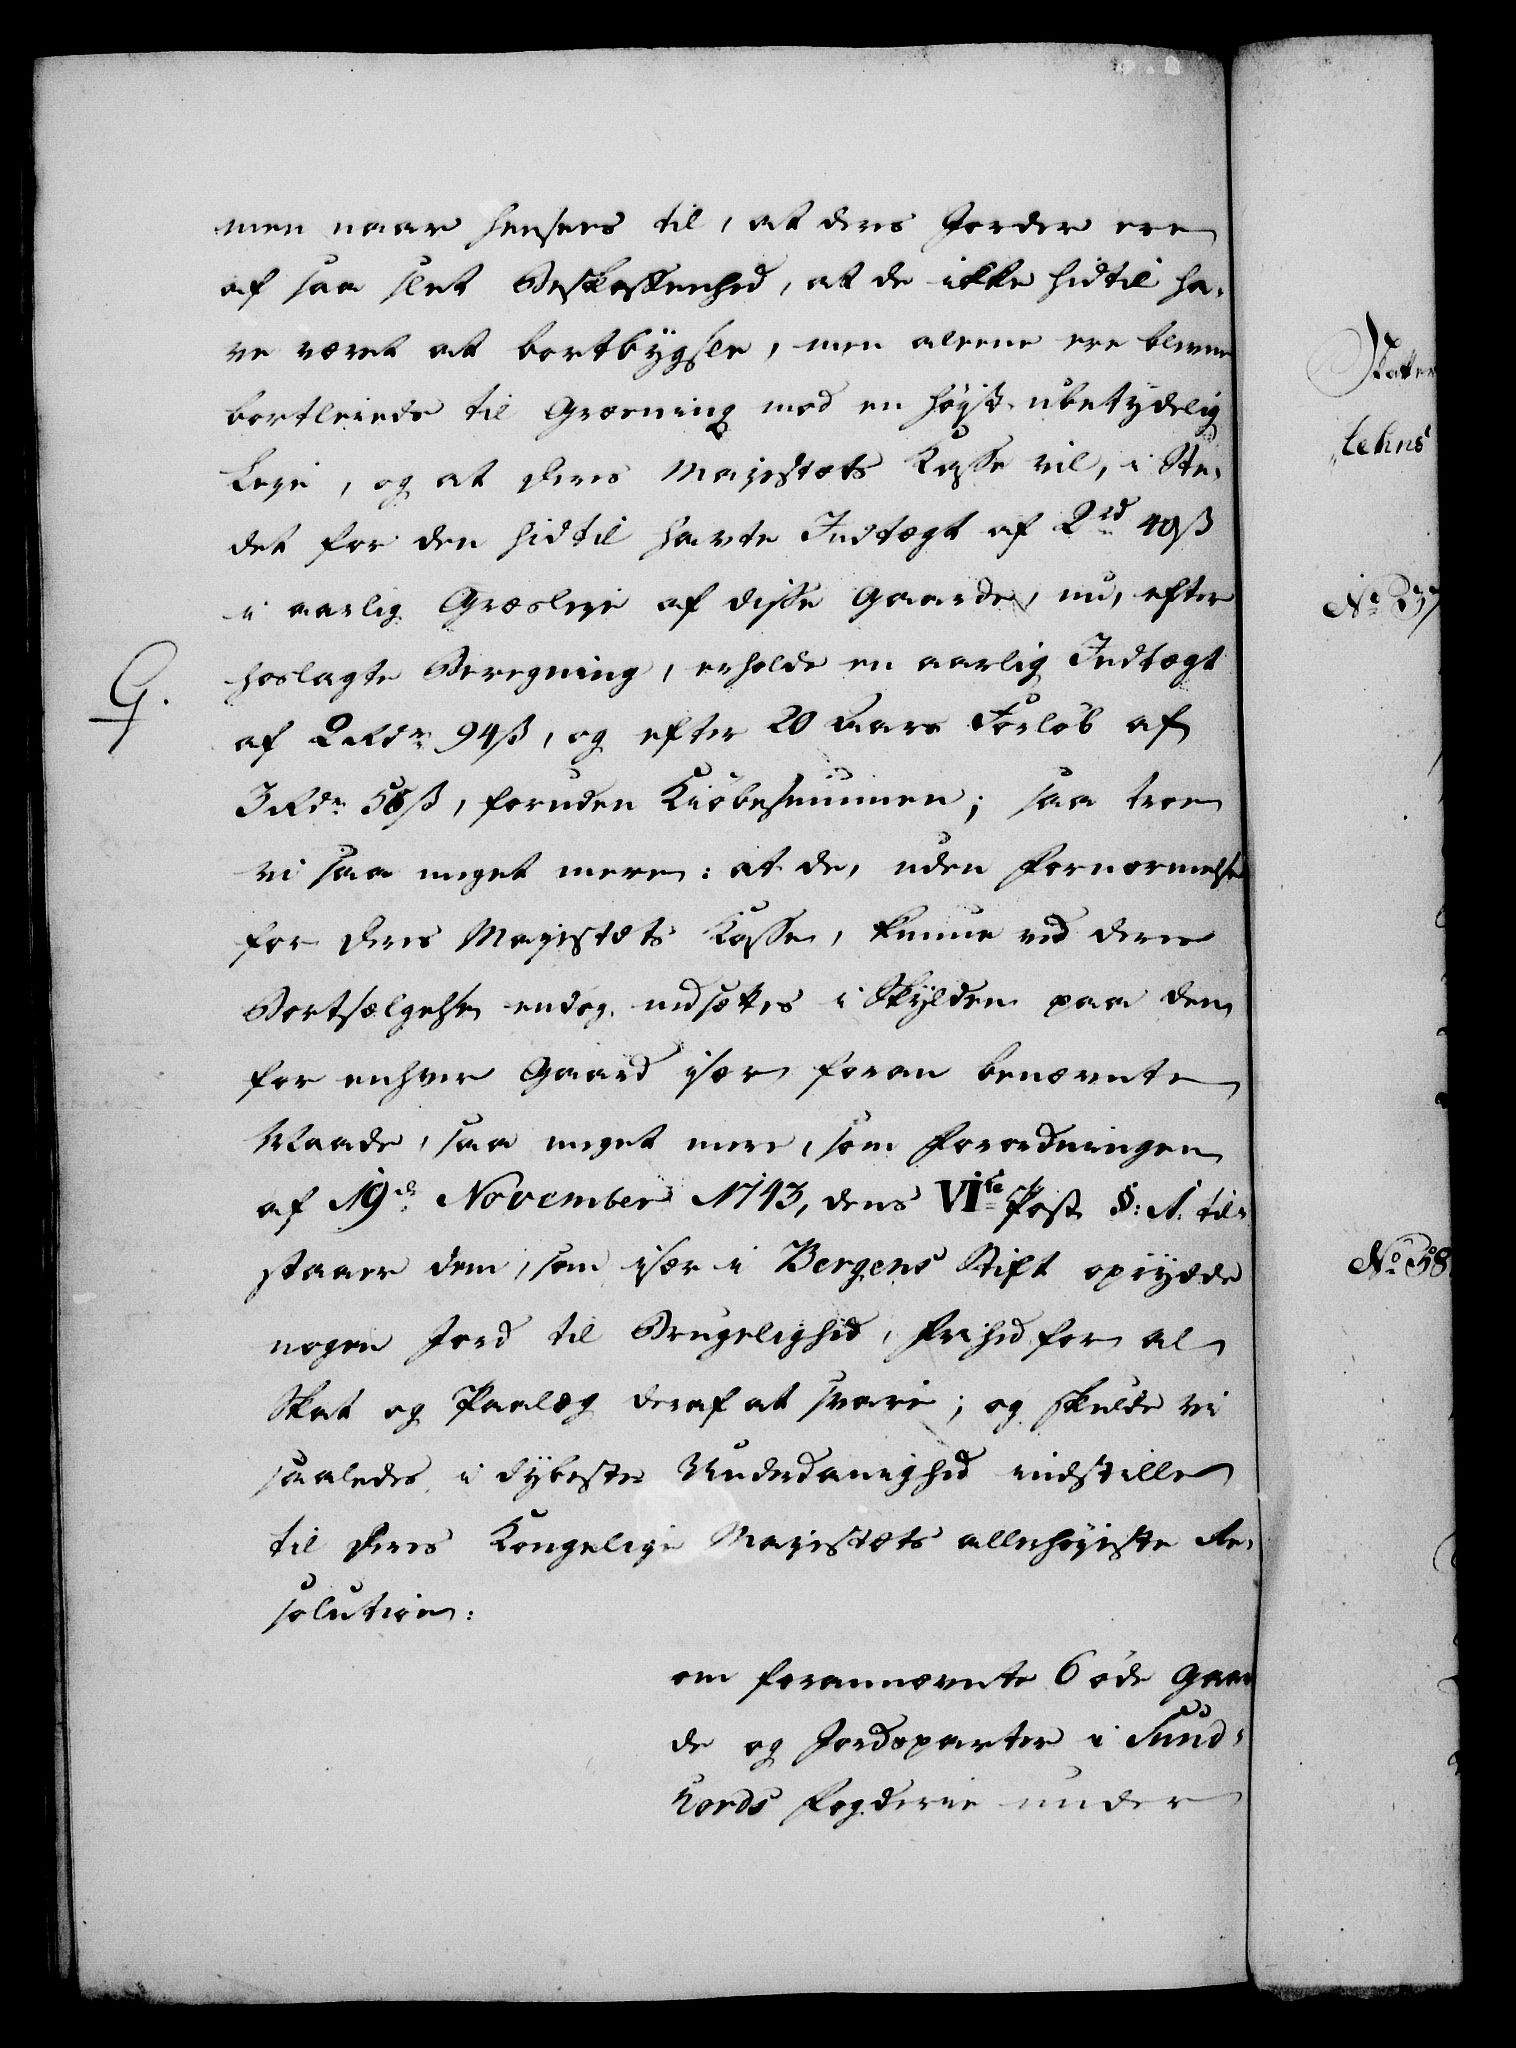 men naar hensees til, at deres Jorder ere
af saa slet Beskaffenhed, at de ikke hidtil ha,
ve været at bortbÿgsle, men aleene ere blevne
bortleiede til Græsning mod en høÿst ubetydelig
Leje, og at Deres Majestæts Kasse vil, i Ste,
det for den hidtil havte Indtægt af 2 rd 40 ß
i aarlig Græsleje af disse Gaarde, nu, efter
G. hoslagte Beregning, erholde en aarlig Indtægt
af 2 Rdr 94 ß, og efter 20 Aars Forløb af
3 Rdr 56 ß, foruden Kiöbesummen; saa troe
vi saa meget mere: at de, uden Fornærmelse
for Deres Majestæts Kasse, kunne ved deres
Bortsælgelse endog nedsættes i Skÿlden paa den
for enhver Gaard især foran benævnte
Maade, saa meget mere, som Forordningen
af 19de November 1743, dens VIte Post §: 1. til,
staaer dem, som især i Bergens Stift oprÿdde
nogen Jord til Brugelighed, Frihed for al
Skat og Paalæg deraf at svare; og skulde vi
saaledes i dÿbeste Underdanighed indstille
til Deres Kongelige Majestæts allerhøjeste Re,
solution:
om forannævnte 6 øde Gaar
de og Jordeparter i Sund,
hords Fogderie under
Skatter
lehns
No 37
No 38